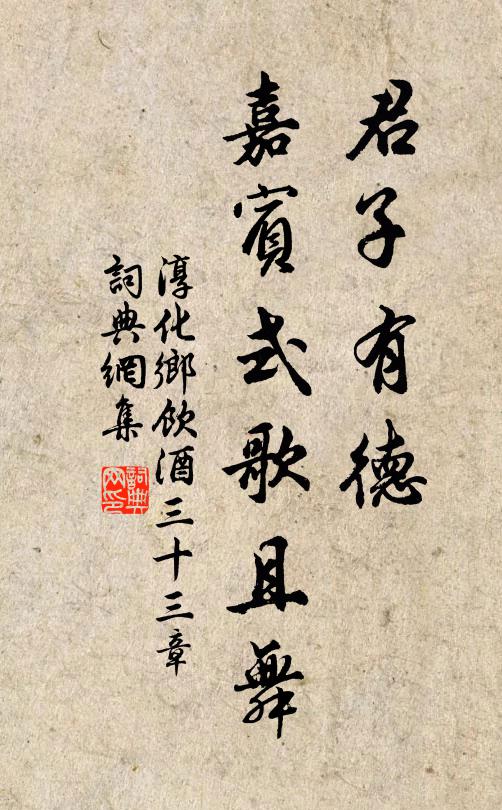 君子有德
嘉賓式歌且舞
淳化鄉飲酒三十三章
詞典網集
詞典网印